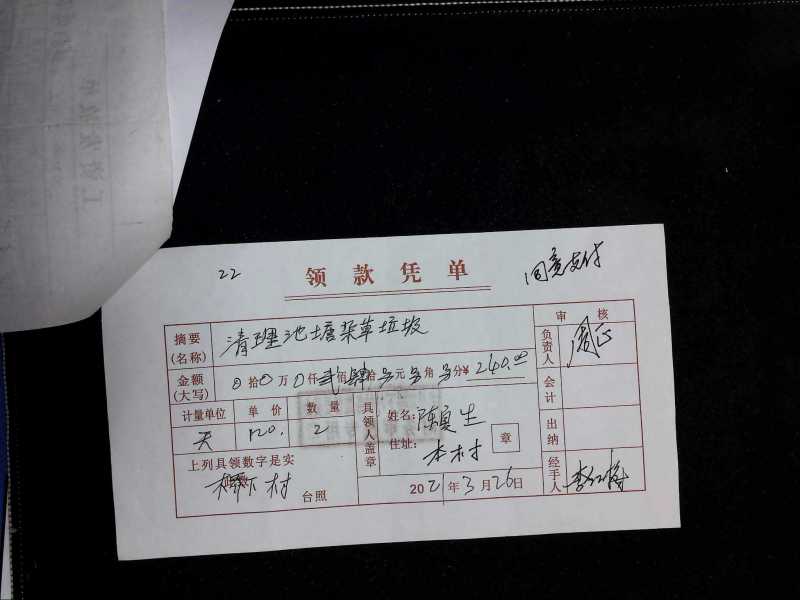 22
领款凭单
同意支付
摘要(名称) 清理池塘杂草垃圾
金额(大写) 0拾0万0仟贰佰肆拾0元0角0分¥ 240.00
计量单位 单价 数量
天 120. 2
上列具领数字是实
村 台照
具领人盖章
姓名: 陈 生
住址: 本村
章
2021年3月26日
审核
负责人 周正
会计
出纳
经手人 李